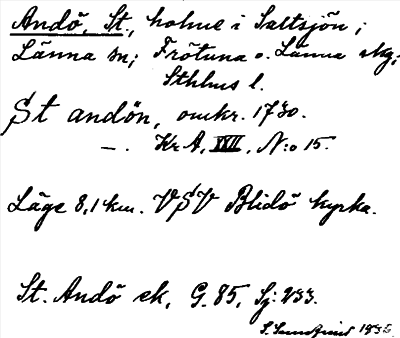 Andö, St., holme i Saltsjön;
Länna sn; Frötuna o. Länna skg;
Sthlms l.
St andön, omkr. 1730.
—. Kr A, XXII, N:o 15.
Läge 8,1 km. VSV Blidö kyrka.
St. Andö ek, G. 85, Sj: 233.